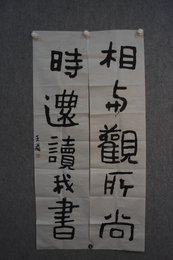 相与觀所尚
時還讀我書